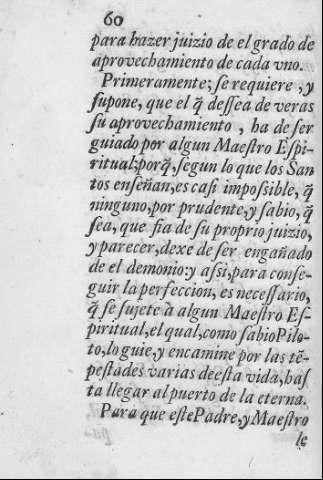 60
para hazer juizio de el grado de
aprovechamiento de cada vno.
Primeramente; se requiere, y
supone, que el q̃ dessea de veras
su aprovechamiento, ha de ser
guiado por algun Maestro Espi-
ritual; porq̃, segun lo que los San
tos enseñan, es casi impossible, q̃
ninguno, por prudente, y sabio, q̃
sea, que fia de su proprio juizio,
y parecer, dexe de ser engañado
de el demonio: y assi, para conse-
guir la perfeccion, es necessario,
q̃ se sujete à algun Maestro Es-
piritual, el qual, como sabio Pilo-
to, lo guie, y encamine por las tẽ-
pestades varias deesta vida, has
ta llegar al puerto de la eterna.
Para que este Padre, y Maestro
le